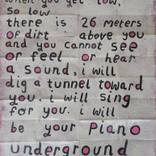 when you get low.
so low
there is 26 meters
of dirt above you
and you cannot see
or feel or hear
a sound, i will
dig a tunnel toward
you. i will sing
for you. i will
be your piano
underground